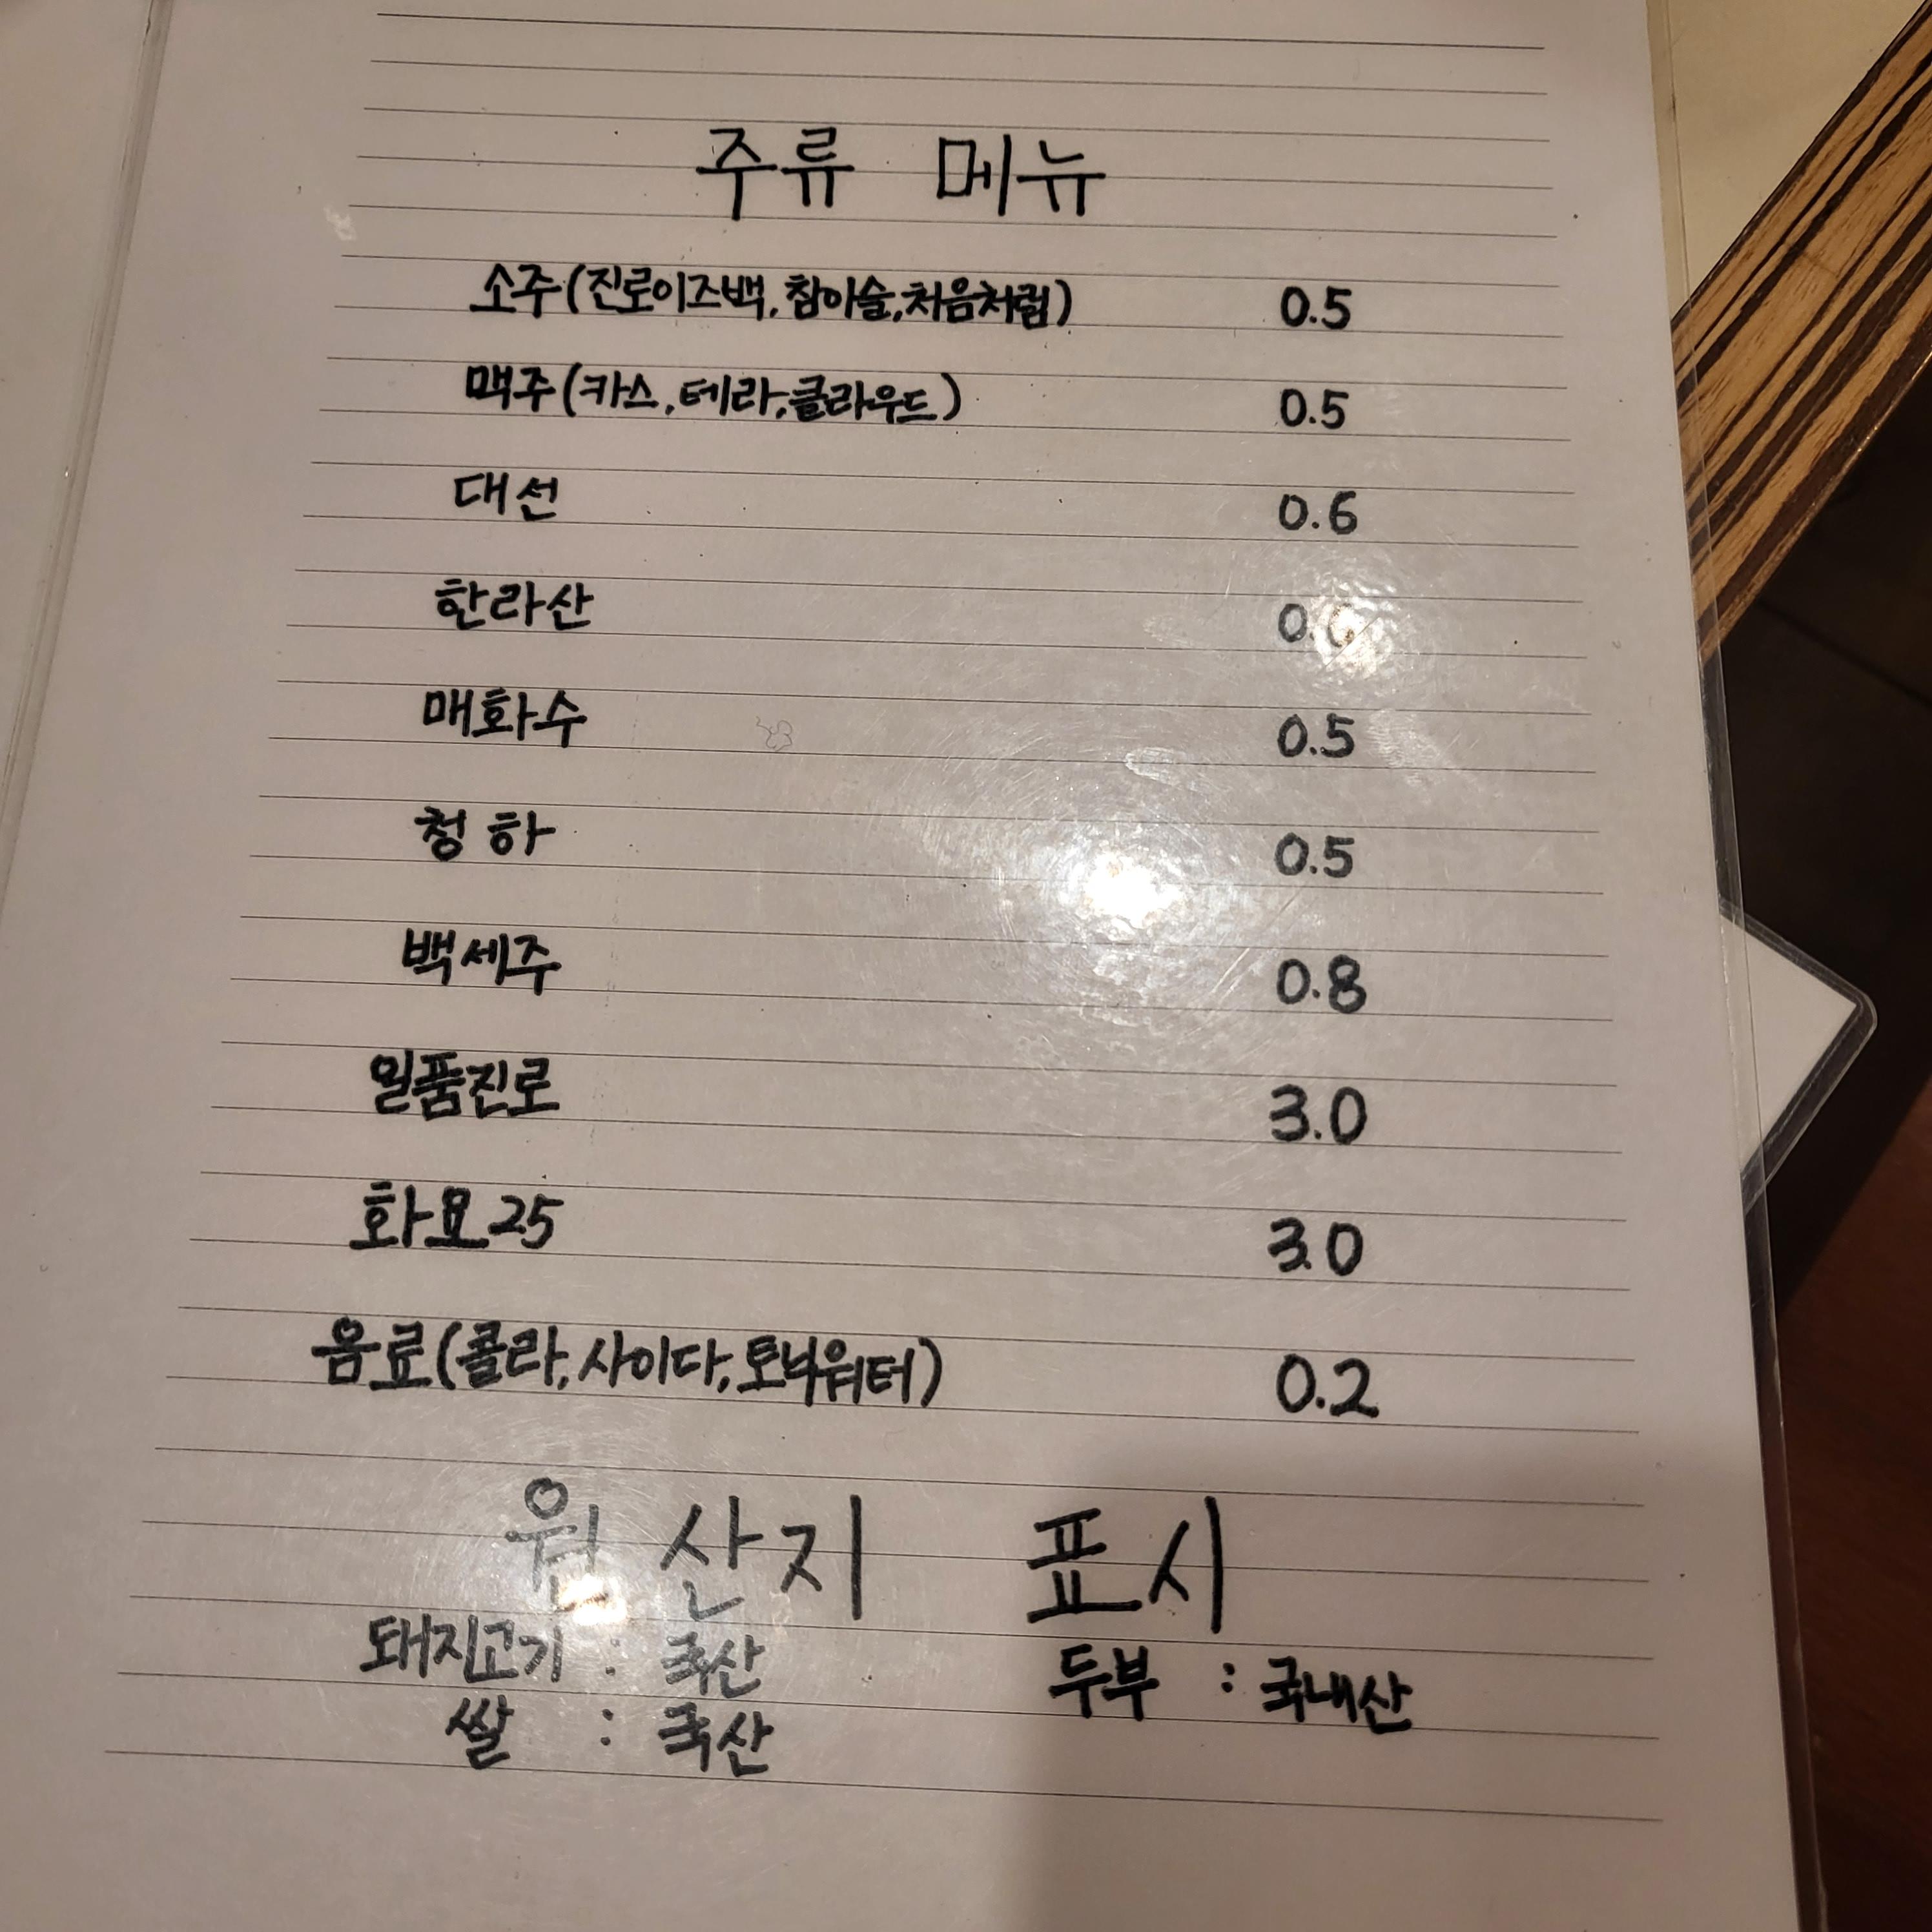 주류 메뉴
소주(진로이즈백,참이슬,처음처럼) 0.5
맥주(카스,테라,클라우드) 0.5
대선 0.6
한라산
매화수 0.5
청하 0.5
백세주 0.8
일품진로 3.0
화요25 3.0
음료(콜라,사이다,토닉워터) 0.2
원산지 표시
돼지고기 : 국산 두부 : 국내산
쌀 : 국산